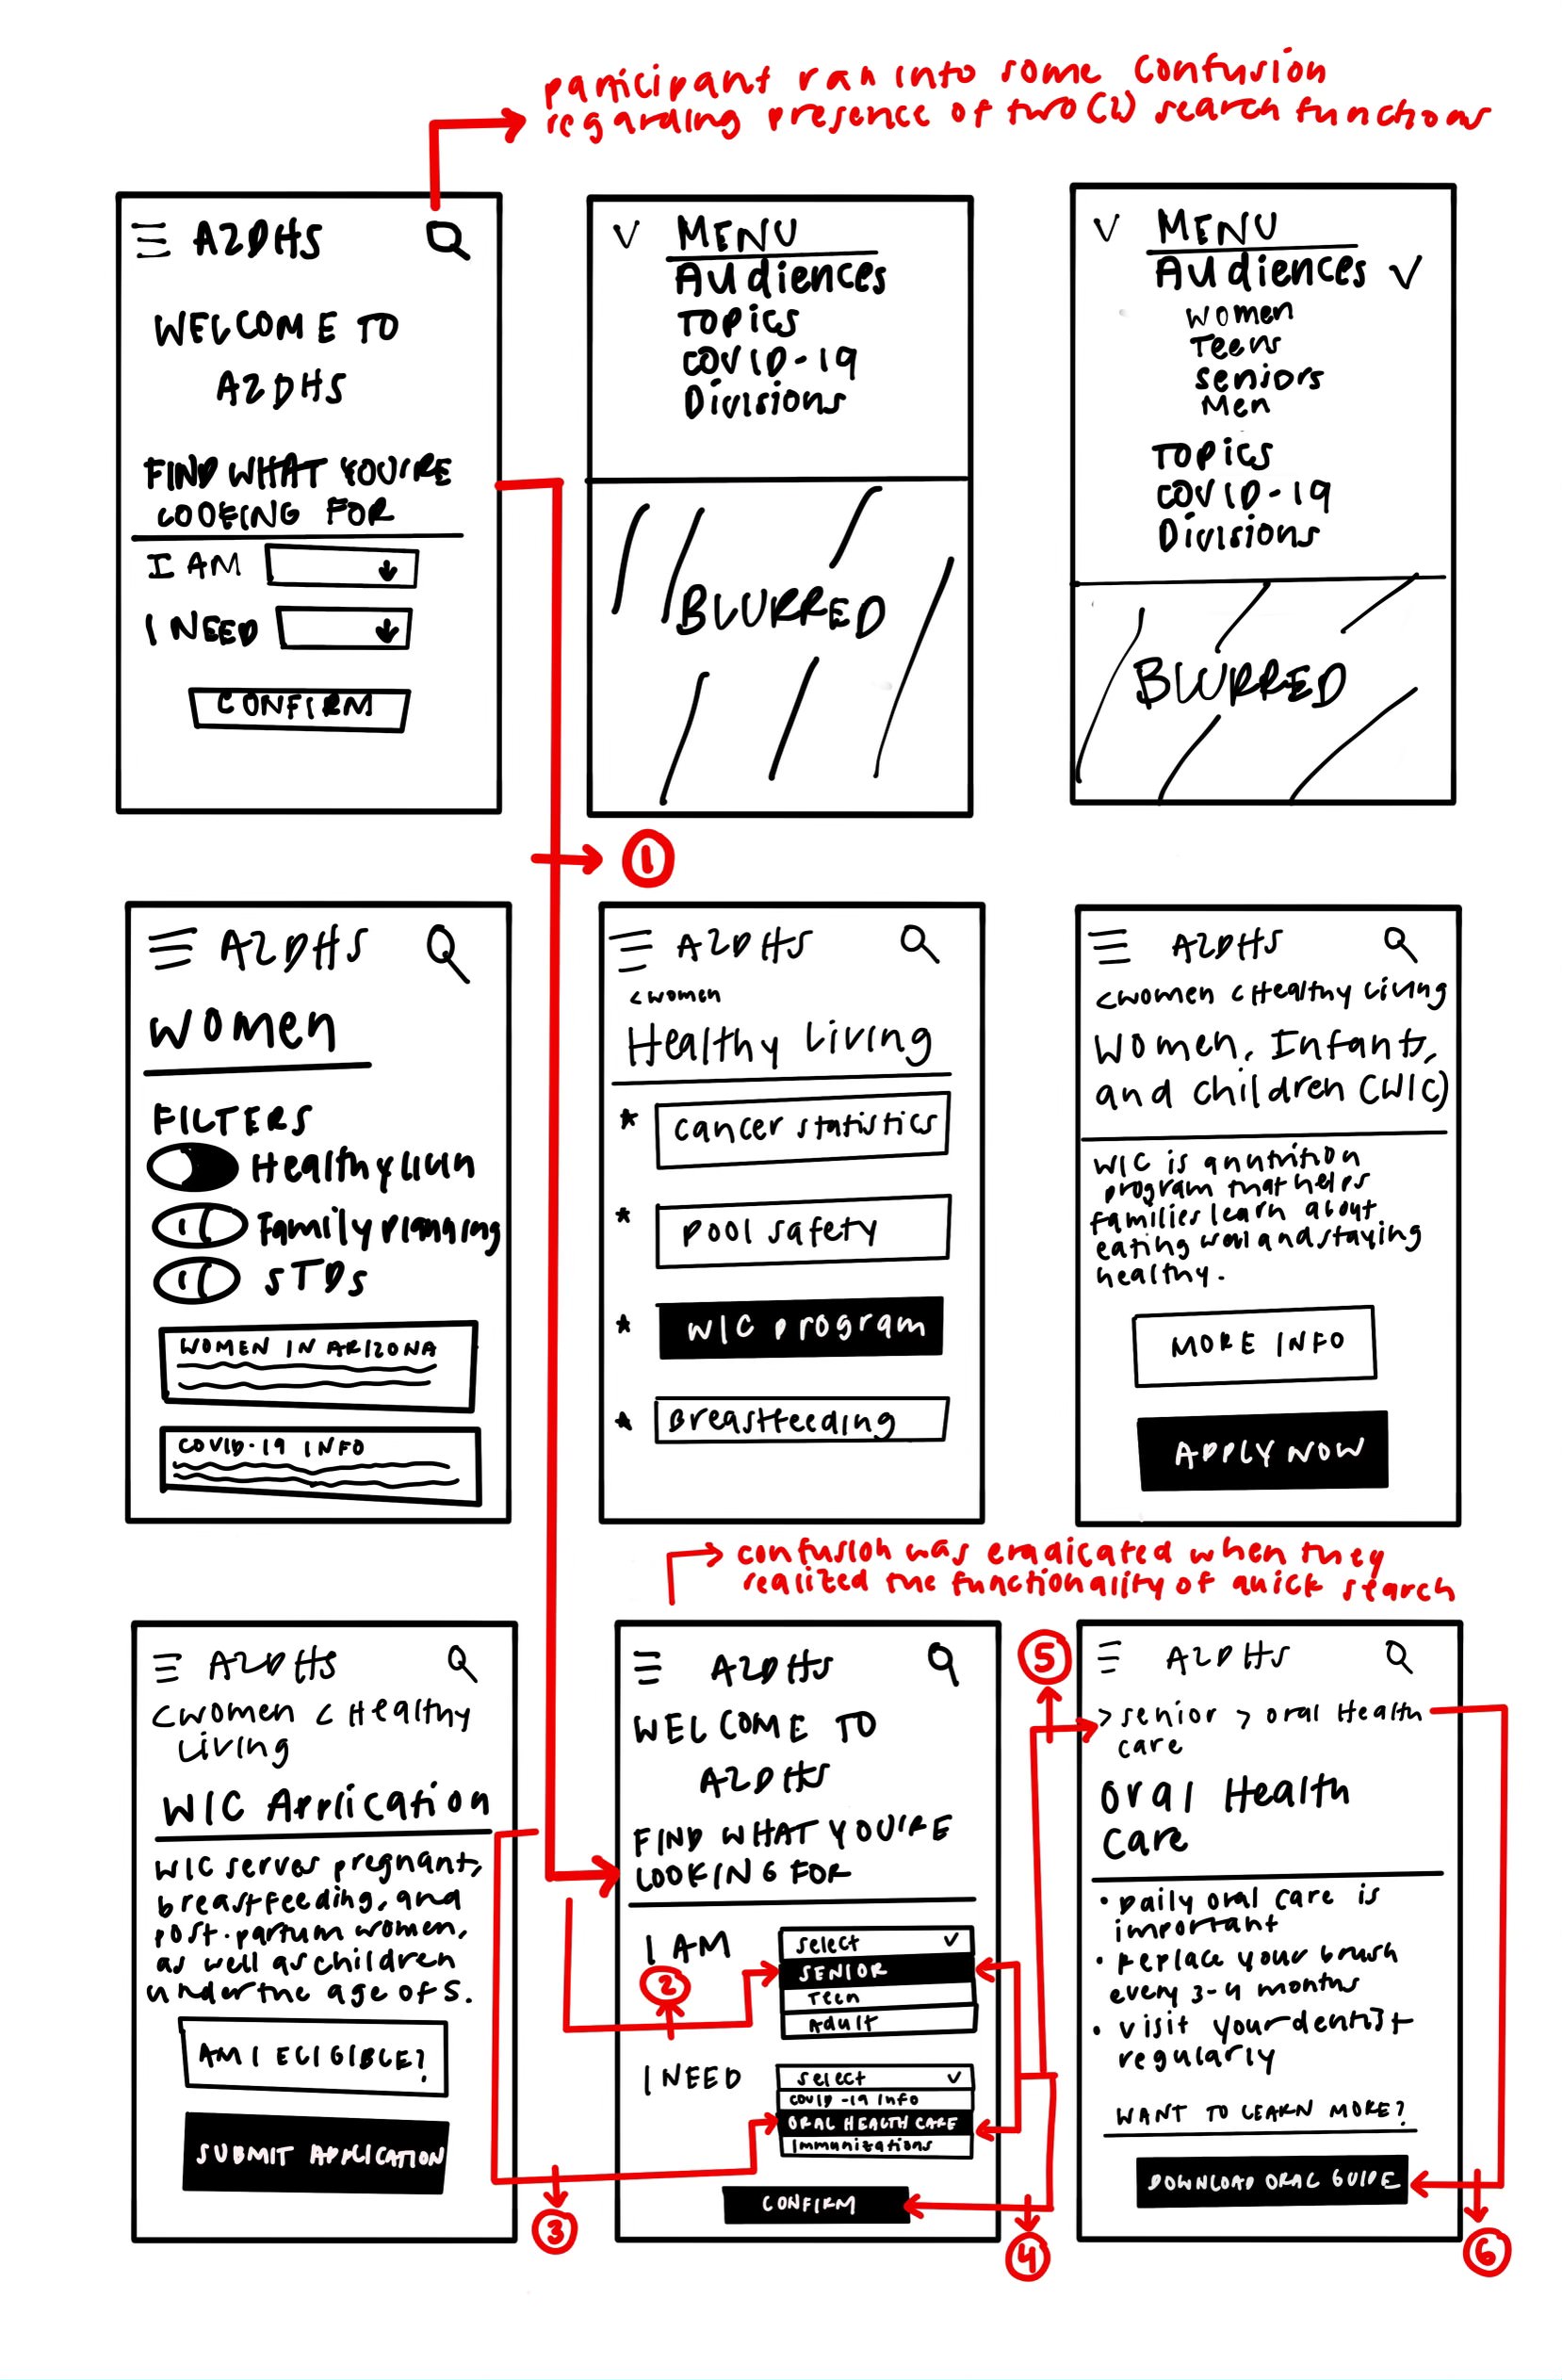 participant ran into some confusion
regarding presence of two (2) search functions
AZDHS
WELCOME TO
AZDHS
FIND WHAT YOU'RE
LOOKING FOR
I AM
I NEED
CONFIRM
V MENU
Audiences
Topics
COVID-19
Divisions
BLURRED
V MENU
Audiences V
Women
Teens
Seniors
Men
Topics
COVID-19
Divisions
BLURRED
1
AZDHS
Women
FILTERS
Healthy livin
Family Planning
STDs
WOMEN IN ARIZONA
COVID-19 INFO
AZDHS
< women
Healthy Living
* cancer statistics
* pool safety
* WIC program
* Breastfeeding
AZDHS
<women <Healthy Living
Women, Infants,
and children (WIC)
WIC is a nutrition
program that helps
families learn about
eating well and staying
healthy.
MORE INFO
APPLY NOW
confusion was eradicated when they
realized the functionality of quick search
AZDHS
<women < Healthy
Living
WIC Application
WIC serves pregnant,
breastfeeding, and
post-partum women,
as well as children
under the age of 5.
AM I ELIGIBLE?
SUBMIT APPLICATION
3
AZDHS
WELCOME TO
AZDHS
FIND WHAT YOU'RE
LOOKING FOR
I AM
select V
SENIOR
Teen
Adult
2
I NEED
select V
COVID-19 Info
ORAL HEALTH CARE
Immunizations
CONFIRM
4
5
AZDHS
> senior > oral Health
care
Oral Health
Care
• Daily oral care is
important
• Replace your brush
every 3-4 months
• Visit your dentist
regularly
WANT TO LEARN MORE?
DOWNLOAD ORAL GUIDE
6